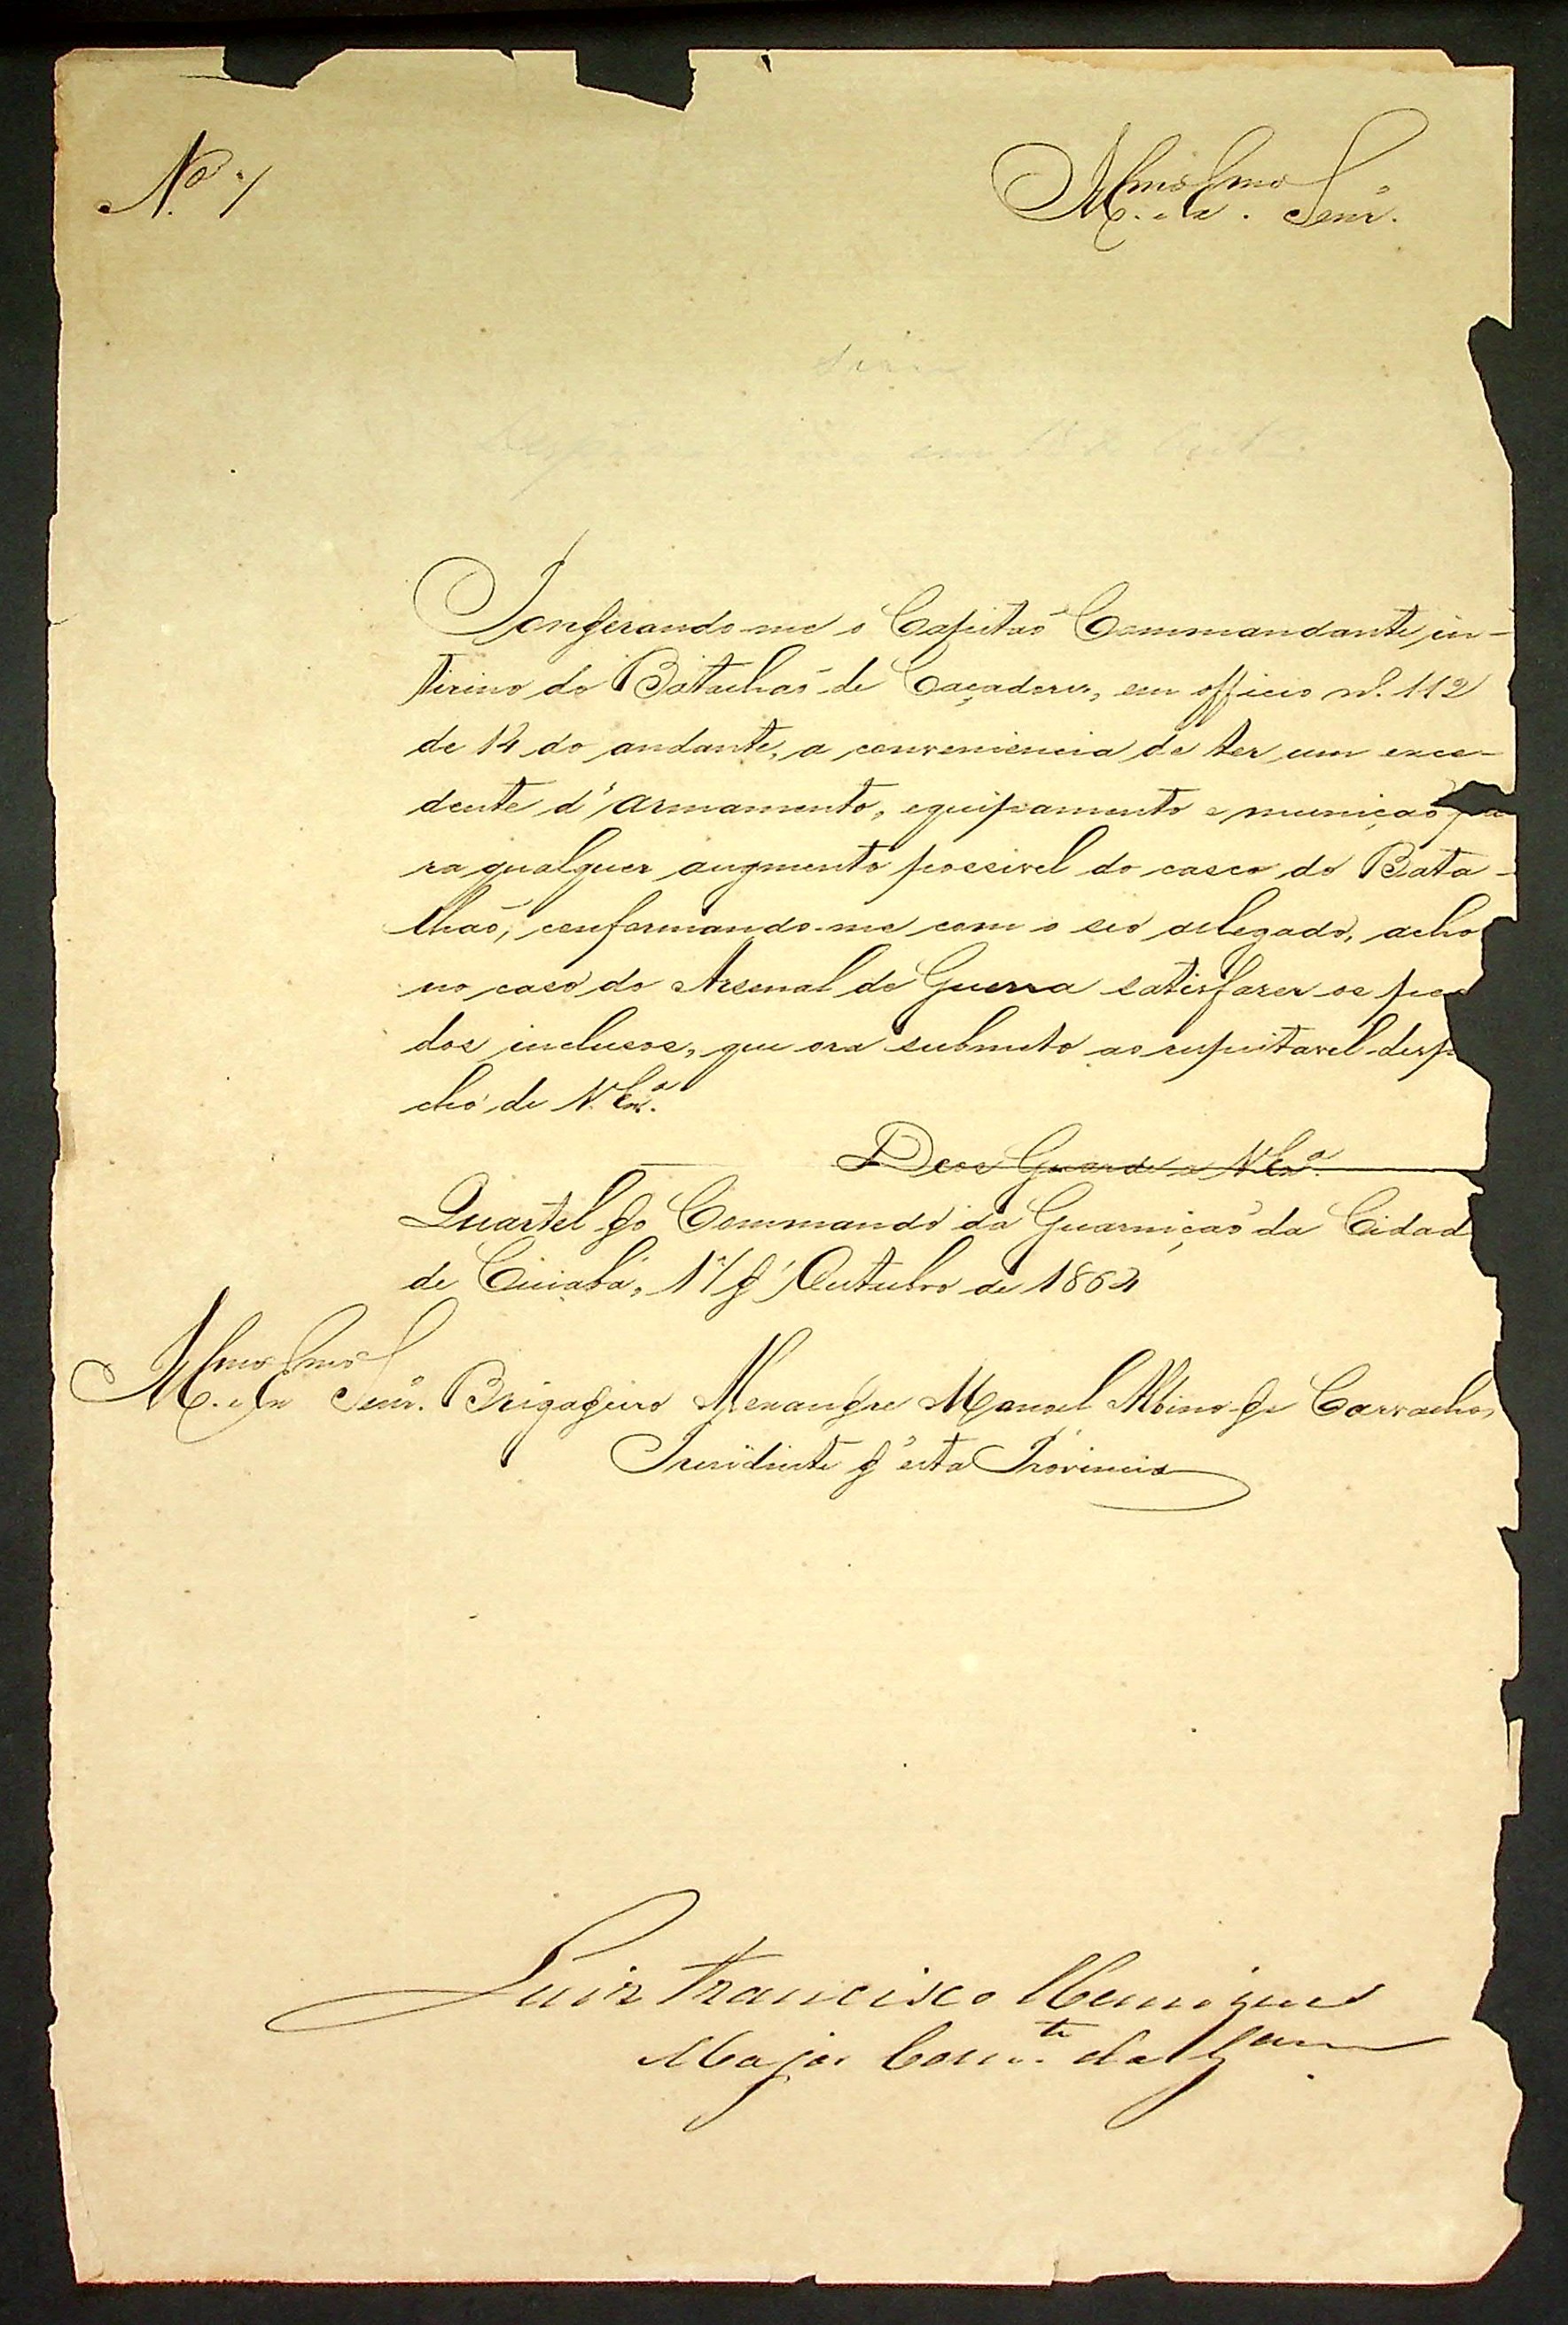 N.º 1
Illmo. e Exmo. Senr.
Ponderando-me o Capitaõ Commandante in-
tirino do Batalhaõ de Caçadores, em officio nº. 112
de 14 do andante, a conveniencia de ter um exce-
dente d'armamento, equipamento e muniçaõ pa
ra qualquer augmento possivel do casco do Bata-
lhaõ, conformando-me com o seo allegado, acho
no caso do Arsenal de Guerra satisfazer os ped
dos inclusos, que ora submeto ao respeitavel desp
cho de V. Exª.
Deos Guarde a V. Exª.
Quartel do Commando da Guarniçaõ da Cidad
de Cuiabá, d'Outubro de 1864
Illmo. e Exmo. Senr. Brigadeiro Alexandre Manoel Albino de Carvalho,
Presidente d'esta Provincia
Luiz Francisco Henriques
Major Comte. da Guam